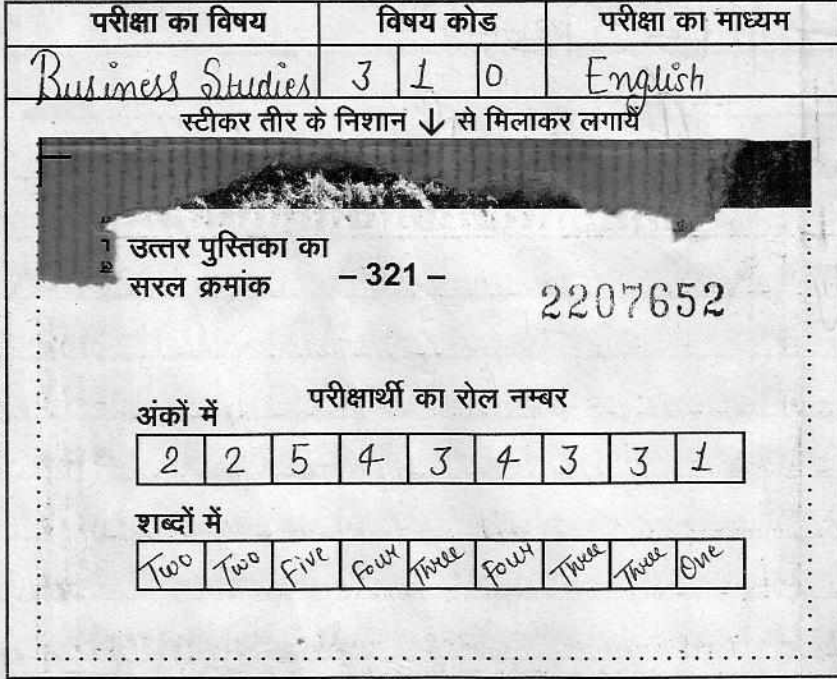 परीक्षा का विषय विषय कोड परीक्षा का माध्यम
Business Studies 3 1 0 English
स्टीकर तीर के निशान ↓ से मिलाकर लगायें
उत्तर पुस्तिका का
सरल क्रमांक – 321 – 2207652
परीक्षार्थी का रोल नम्बर
अंकों में
2 2 5 4 3 4 3 3 1
शब्दों में
Two Two Five Four Three Four Three Three One